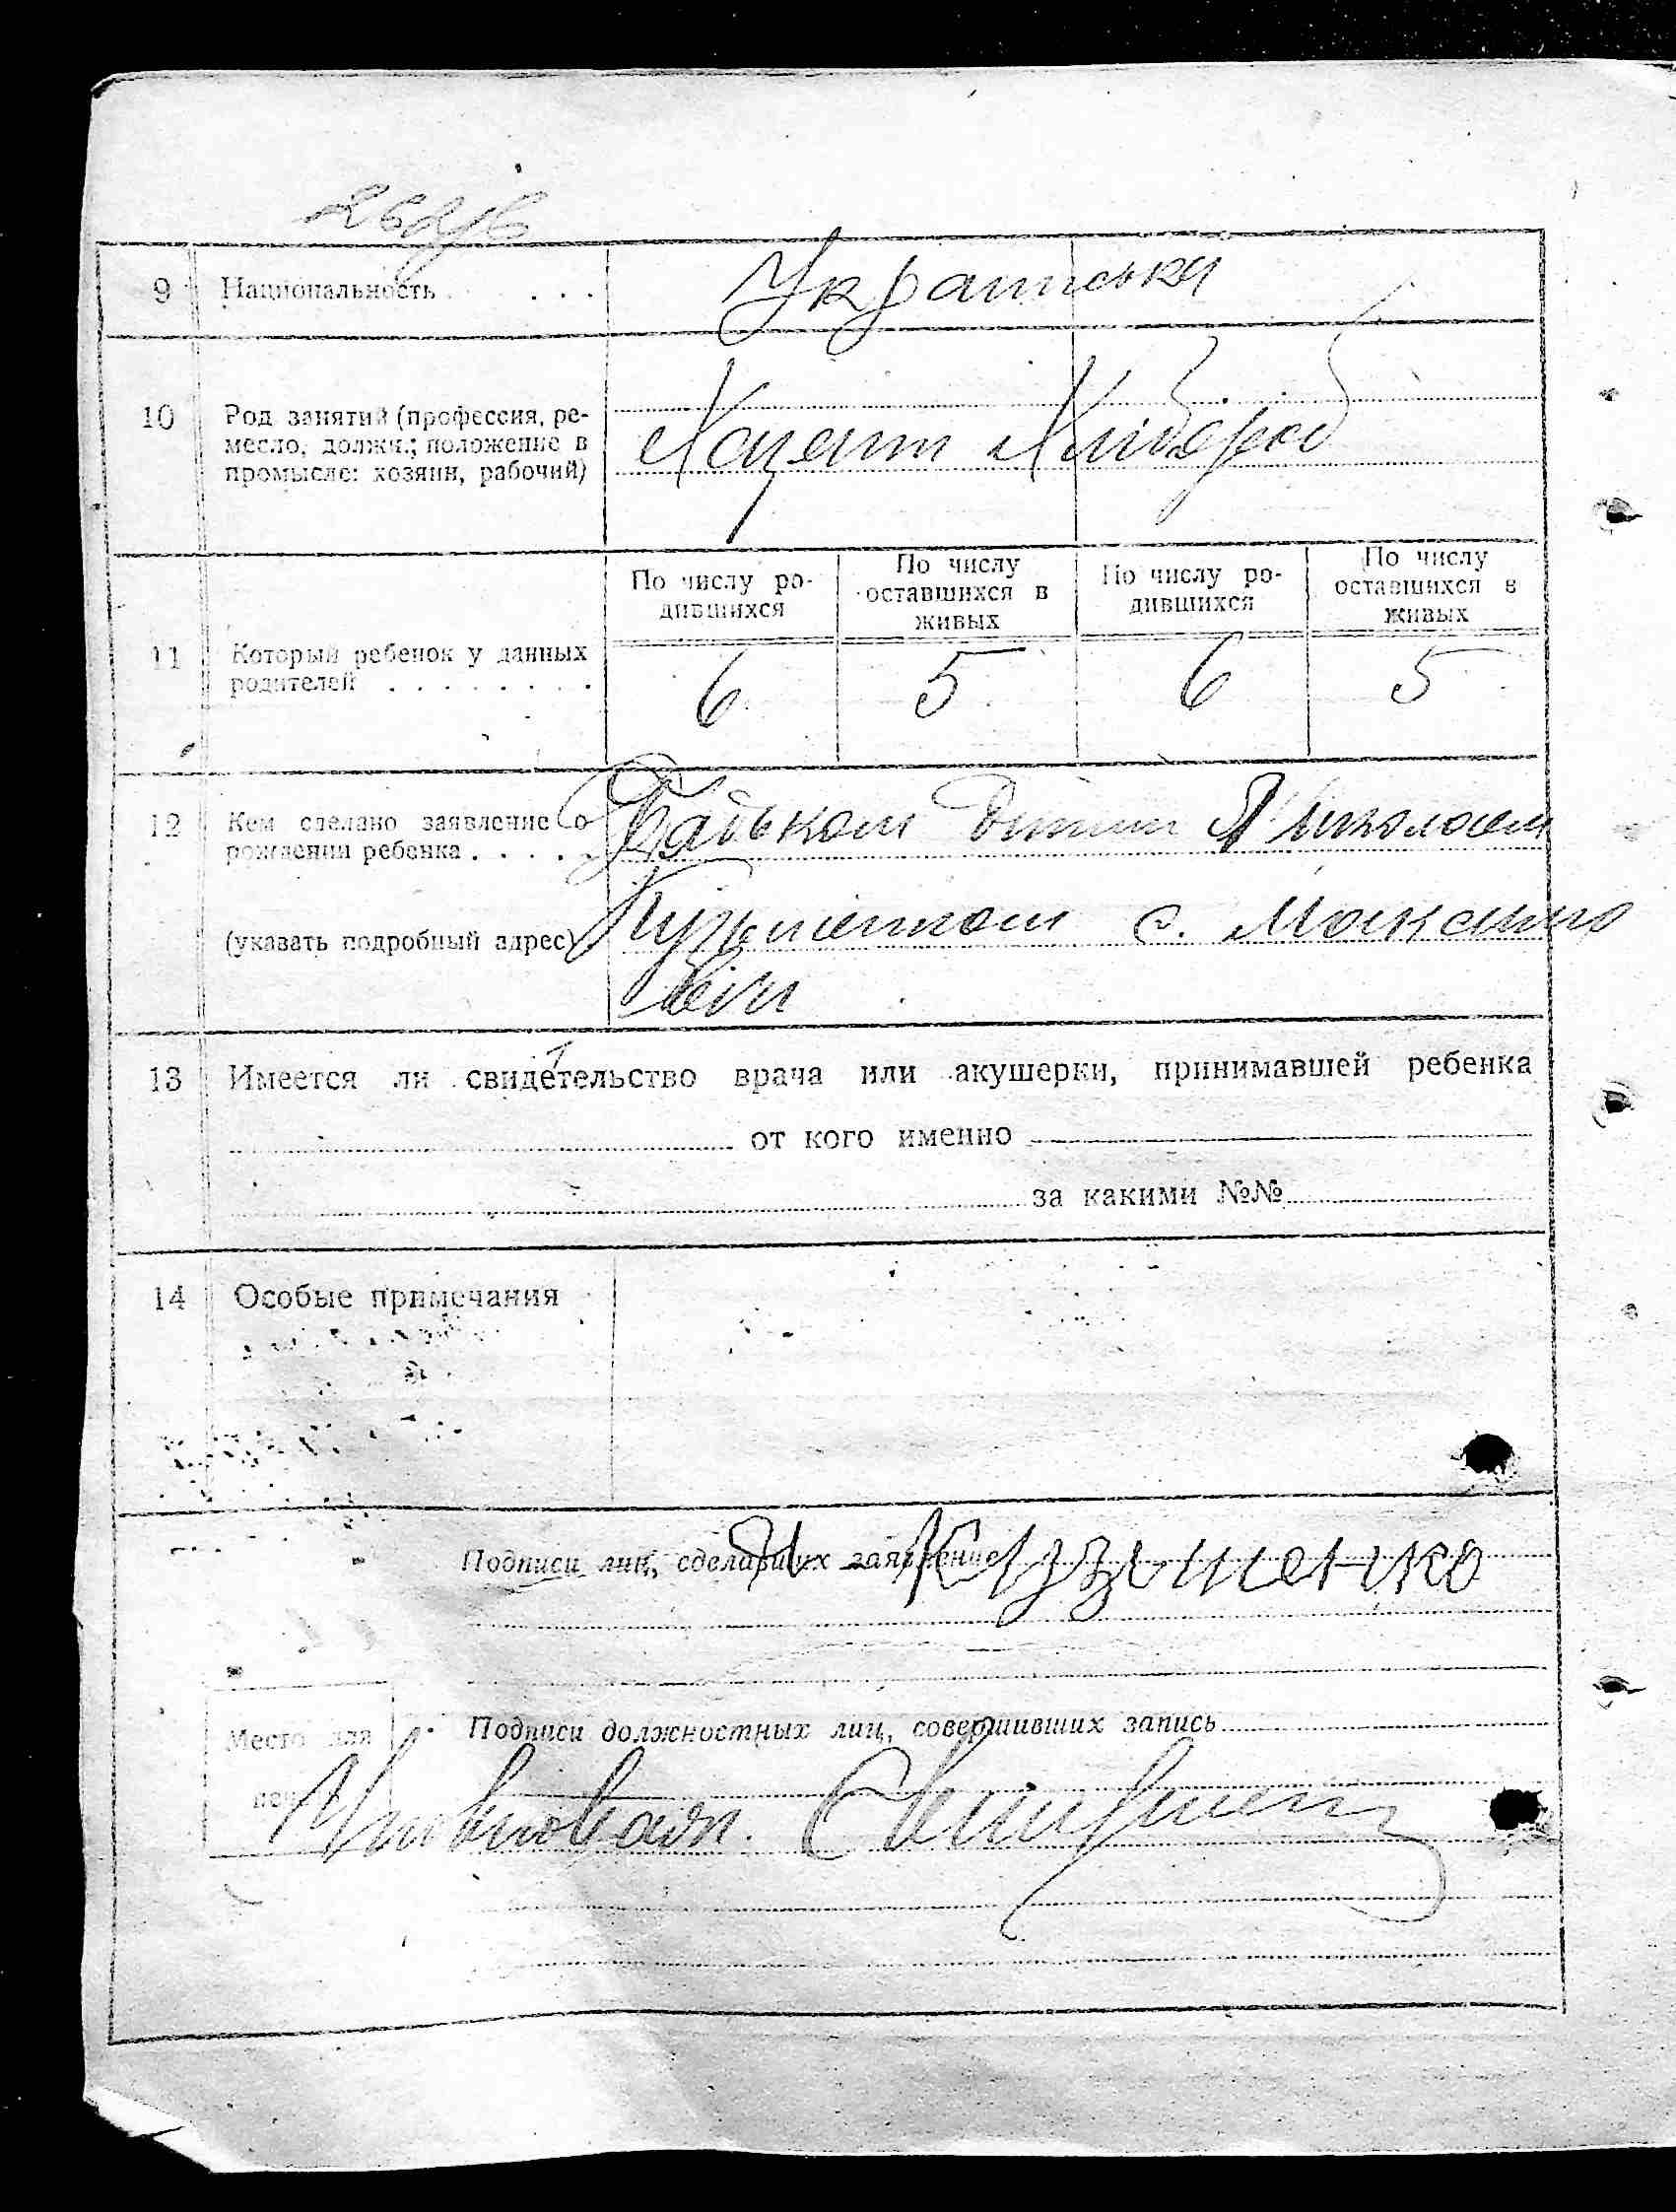 9 Национальность . . . . Українська
10 Род занятий (профессия, ре-
месло, должн.; положение в
промысле: хозяин, рабочий)
Хлібороб
По числу ро-
дившихся
По числу
оставшихся в
живых
По числу ро-
дившихся
По числу
оставшихся в
живых
11 Который ребенок у данных
родителей . . . . . . . .
6 5 6 5
12 Кем сделано заявление о
рождении ребенка . . . . .
Батьком дитини Миколаем
(указать подробный адрес)
Кузьменком с. Максимо
вка
13 Имеется ли свидетельство врача или акушерки, принимавшей ребенка
от кого именно
за какими №№
14 Особые примечания
Подписи лиц, сделавших заявление
Кузьменко
Подписи должностных лиц, совершивших запись
Место для
печ